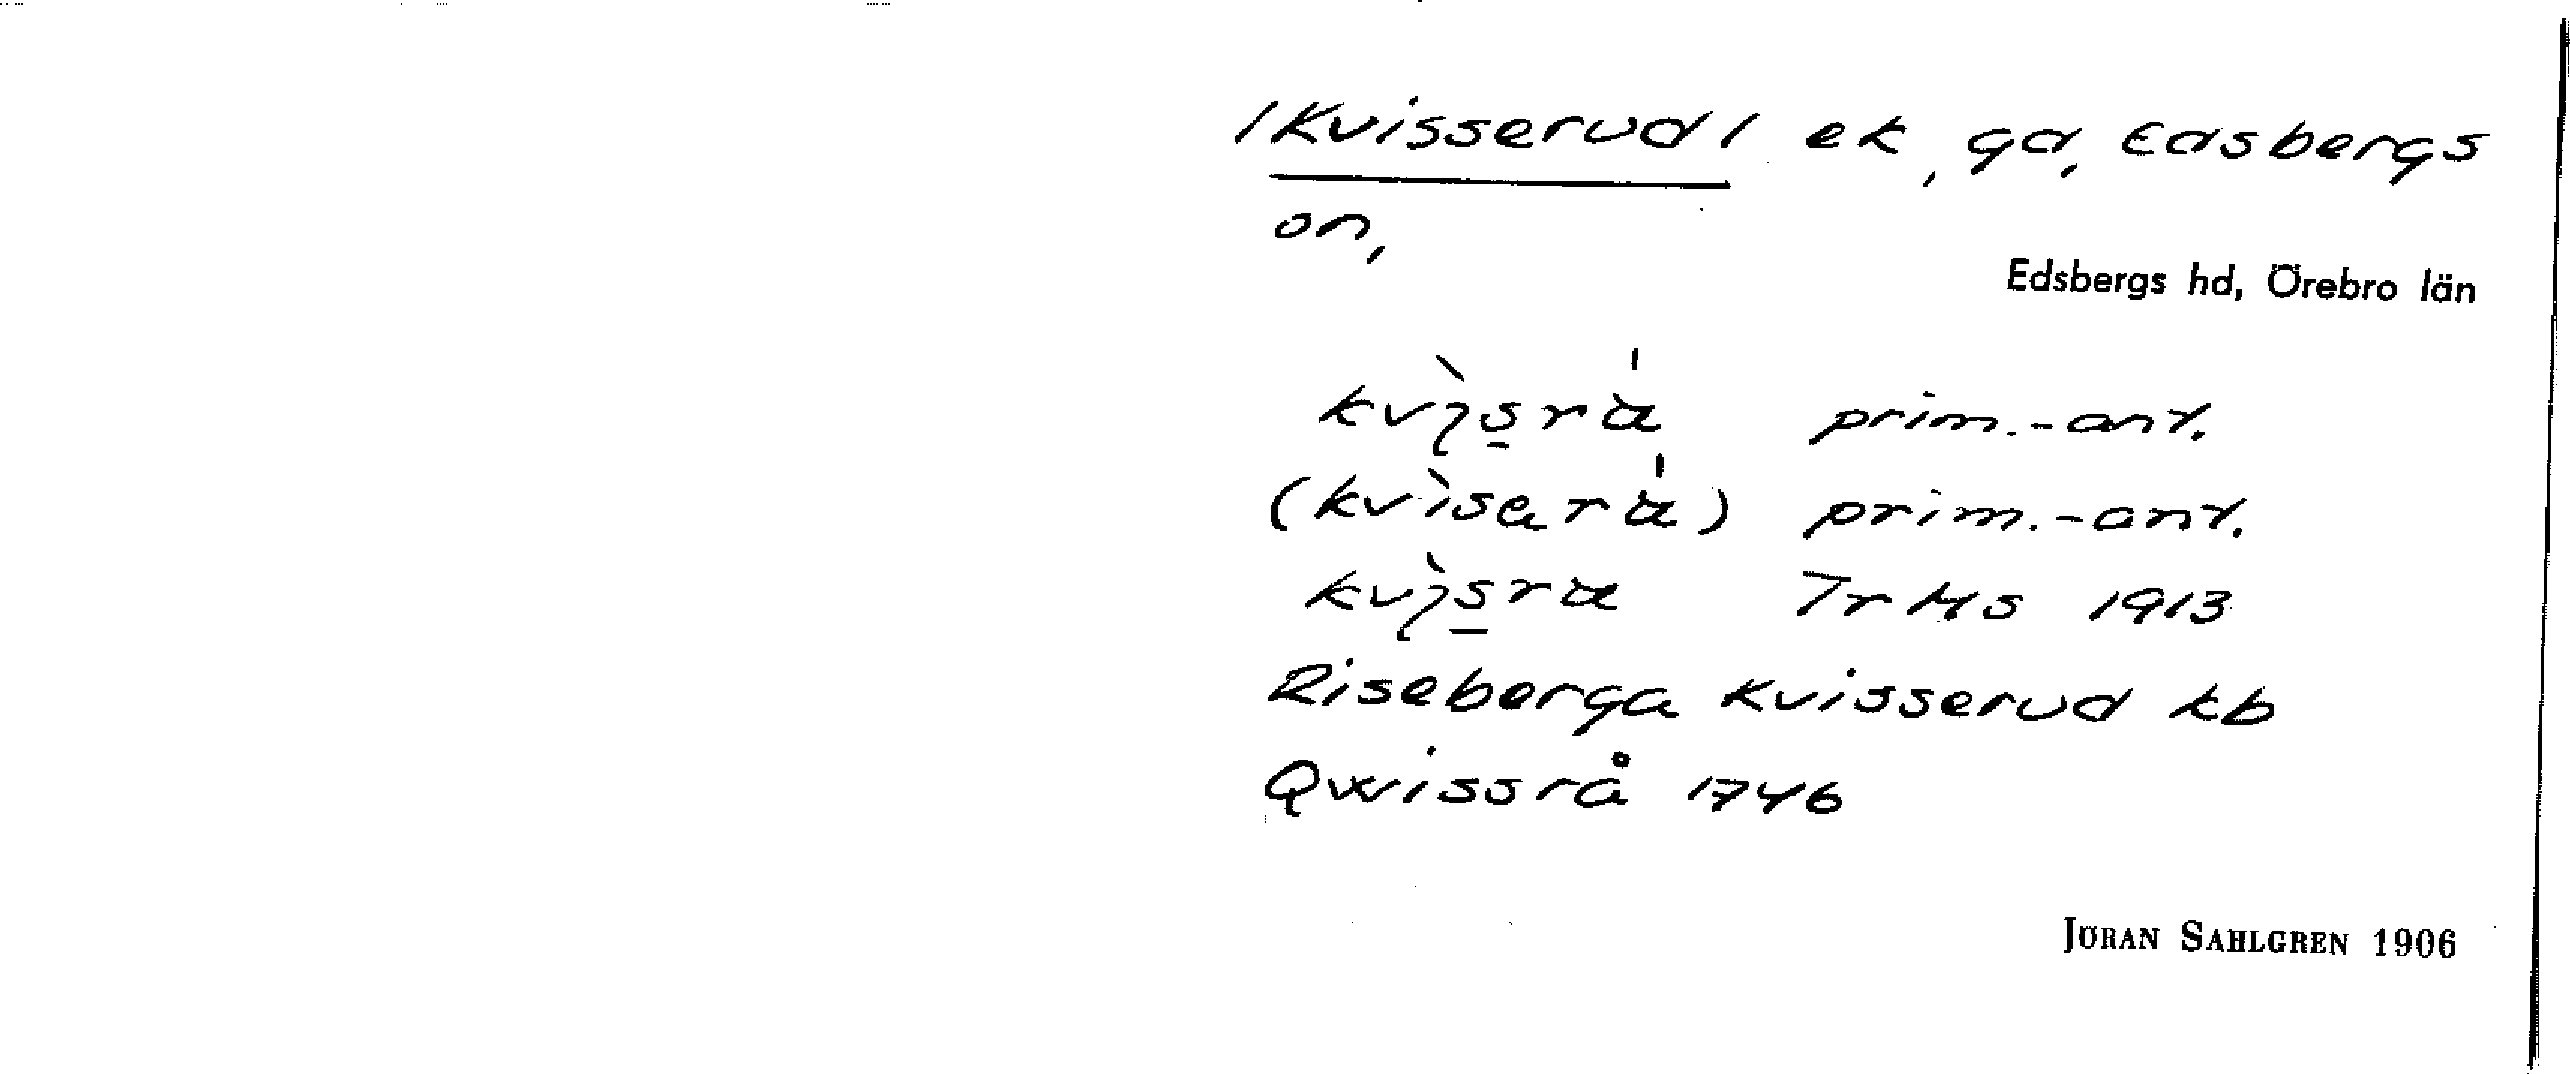 /Kvisserud/ ek, gd, Edsbergs
sn,
Edsbergs hd, Örebro län
prim.-ant.
prim.-ant.
Tr Ms 1913
Riseberga Kvisserud kb
Qwissrå 1746
JÖRAN SAHLGREN 1906